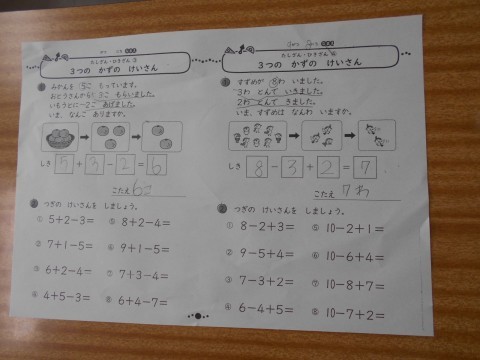 たしざん・ひきざん③
3つの かずの けいさん
みかんを 5こ もっています。
おとうさんから 3こ もらいました。
いもうとに 2こ あげました。
いま、なんこ ありますか。
しき 5+3-2=6
こたえ 6こ
つぎの けいさんを しましょう。
① 5+2-3= ⑤ 8+2-4=
② 7+1-5= ⑥ 9+1-5=
③ 6+2-4= ⑦ 7+3-4=
④ 4+5-3= ⑧ 6+4-7=
たしざん・ひきざん④
3つの かずの けいさん
すずめが 8わ いました。
3わ とんで いきました。
2わ とんで きました。
いま、すずめは なんわ いますか。
しき 8-3+2=7
こたえ 7わ
つぎの けいさんを しましょう。
① 8-2+3= ⑤ 10-2+1=
② 9-5+4= ⑥ 10-6+4=
③ 7-3+2= ⑦ 10-8+7=
④ 6-4+5= ⑧ 10-7+2=